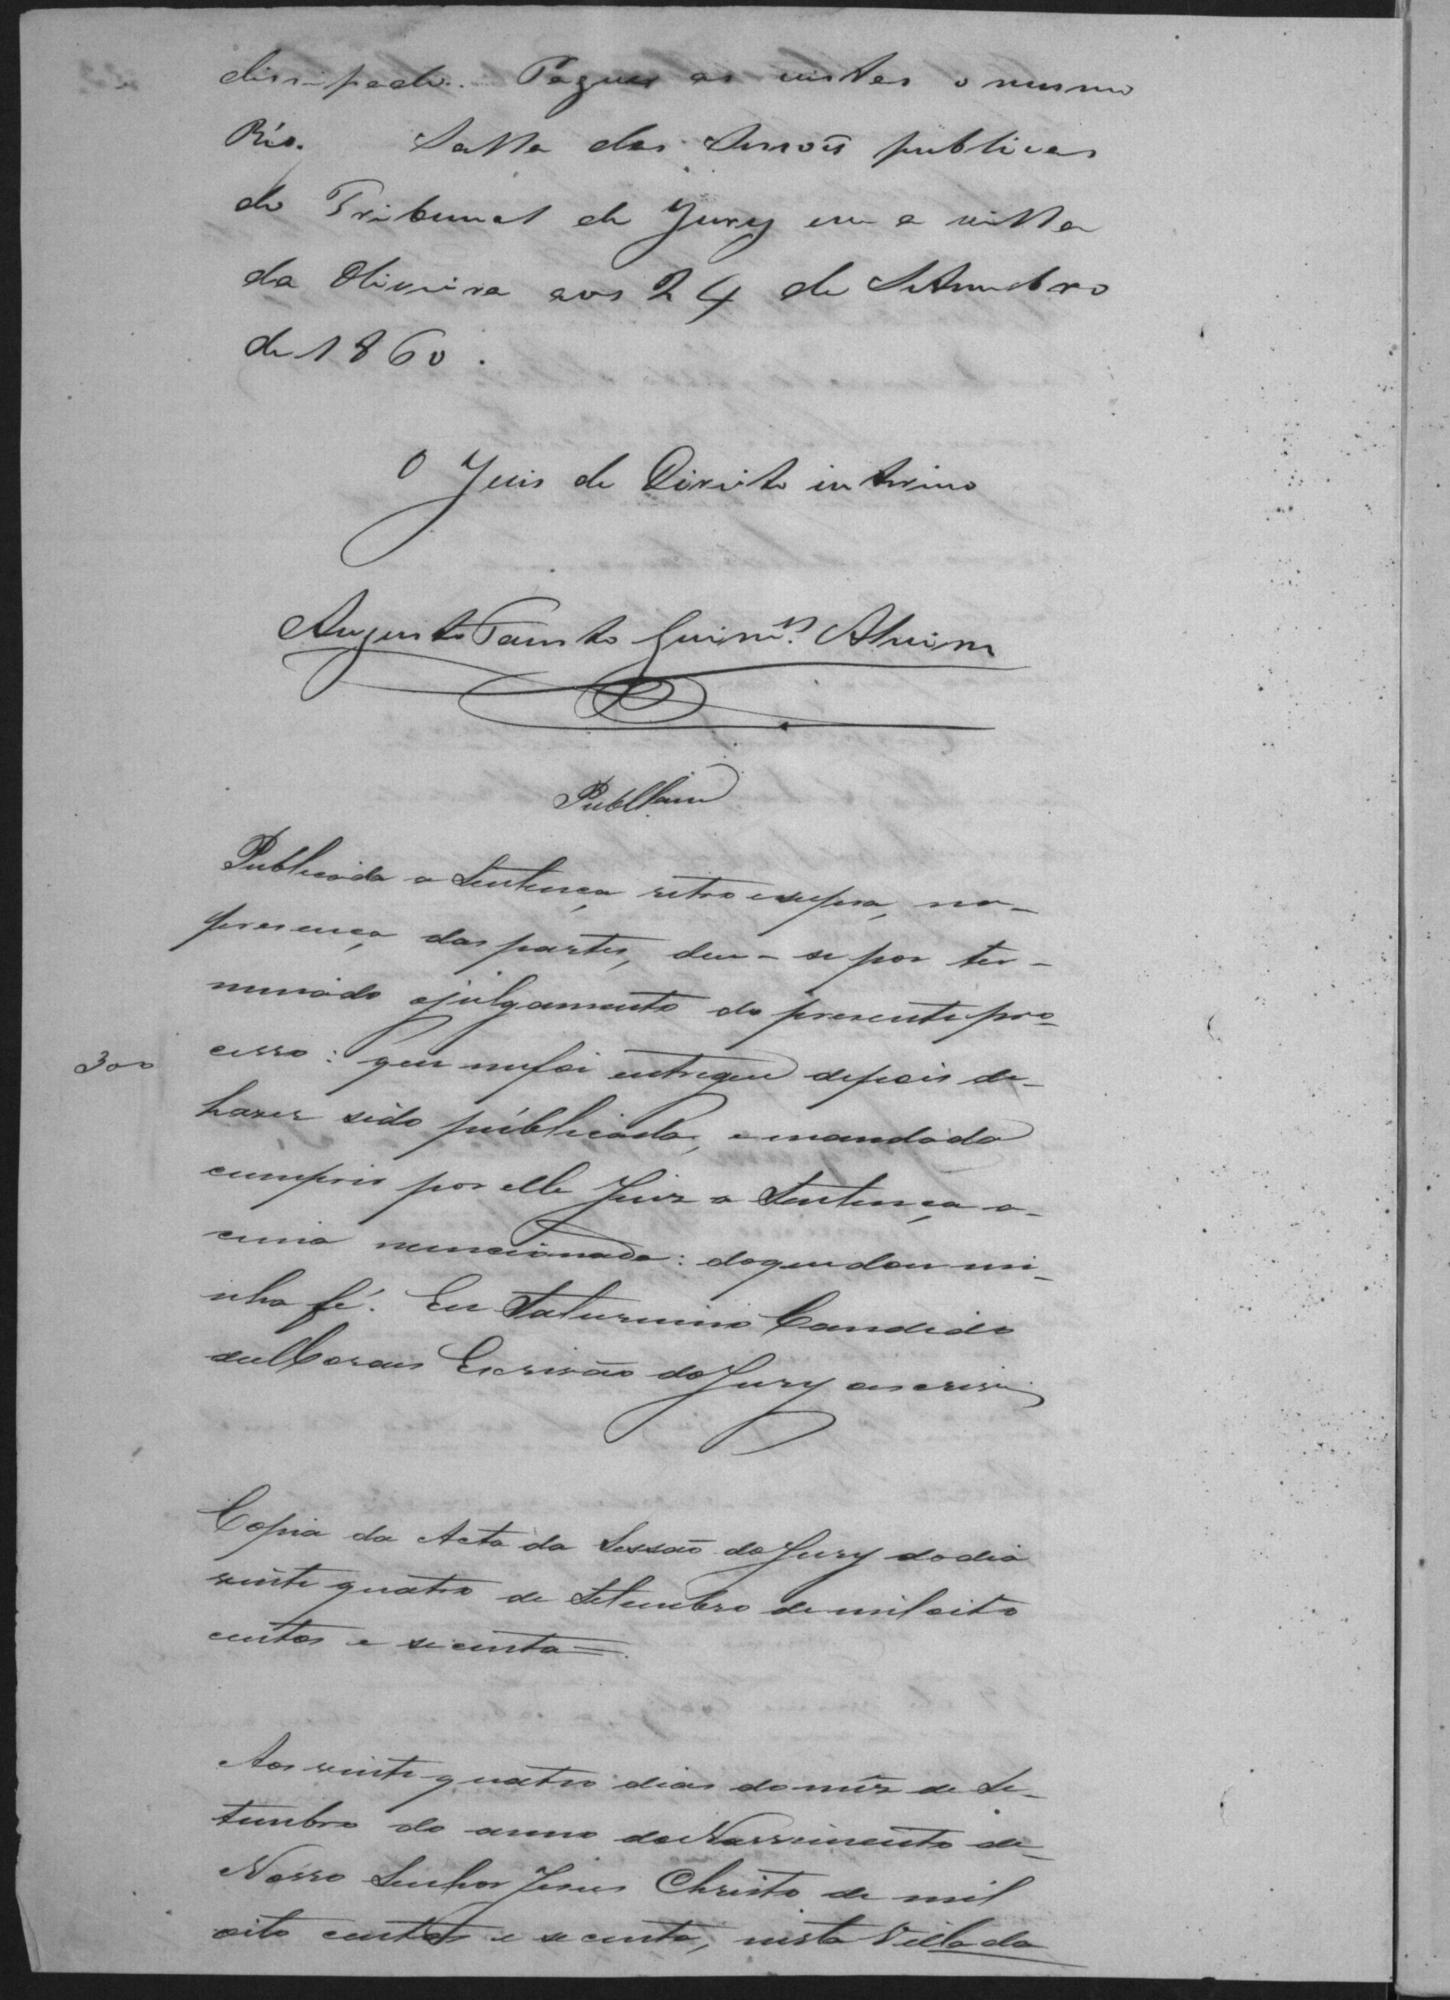 dissipado. Pague as custas o mesmo
Réo. Salla das Sessões publicas
do Tribunal do Jury em a villa
da Oliveira aos 24 de Setembro
de 1860.
O Juis de Direito interino
Augusto Fausto Guim.es Alvim
Publicam
Publicada a Sentença retro e supra, na
presença das partes, deu-se por ter-
minado o julgamento do presente pro-
cesso: que me foi entregue depois de
300
haver sido publicada, e mandada
cumprir por elle Juiz a Sentença a-
cima mencionada: do que dou mi-
nha fé. Eu Saturnino Candido
de Moraes Escrivão do Jury o escrevi
Copia da Acta da Sessão do Jury do dia
vinte quatro de Setembro de mil oito
centos e secenta=.
Aos vinte quatro dias do mêz de Se-
tembro do anno do Nascimento de
Nosso Senhor Jesus Christo de mil
oito centos e secenta, nesta Villa da